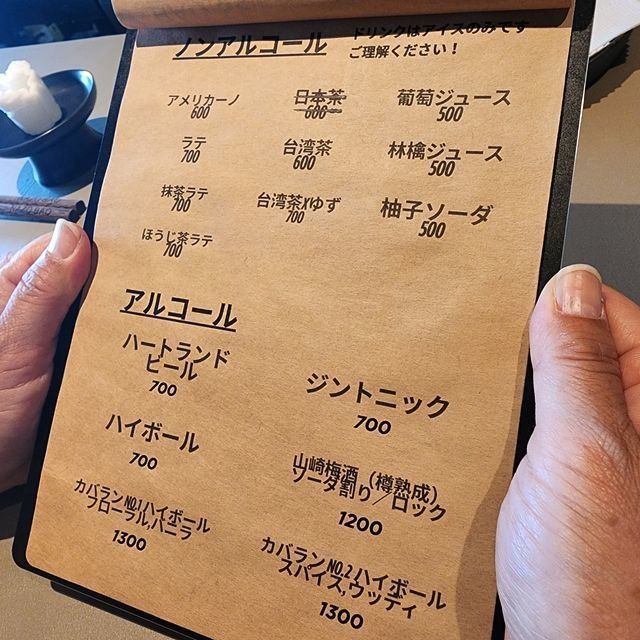 ノンアルコール
ドリンクはアイスのみです
ご理解ください！
アメリカーノ
600
日本茶
600
葡萄ジュース
500
ラテ
700
台湾茶
600
林檎ジュース
500
抹茶ラテ
700
台湾茶xゆず
700
柚子ソーダ
500
ほうじ茶ラテ
700
アルコール
ハートランド
ビール
700
ジントニック
700
ハイボール
700
山崎梅酒（樽熟成）
ソーダ割り／ロック
1200
カバランNO.1ハイボール
フローラル,バニラ
1300
カバランNO.2ハイボール
スパイス,ウッディ
1300